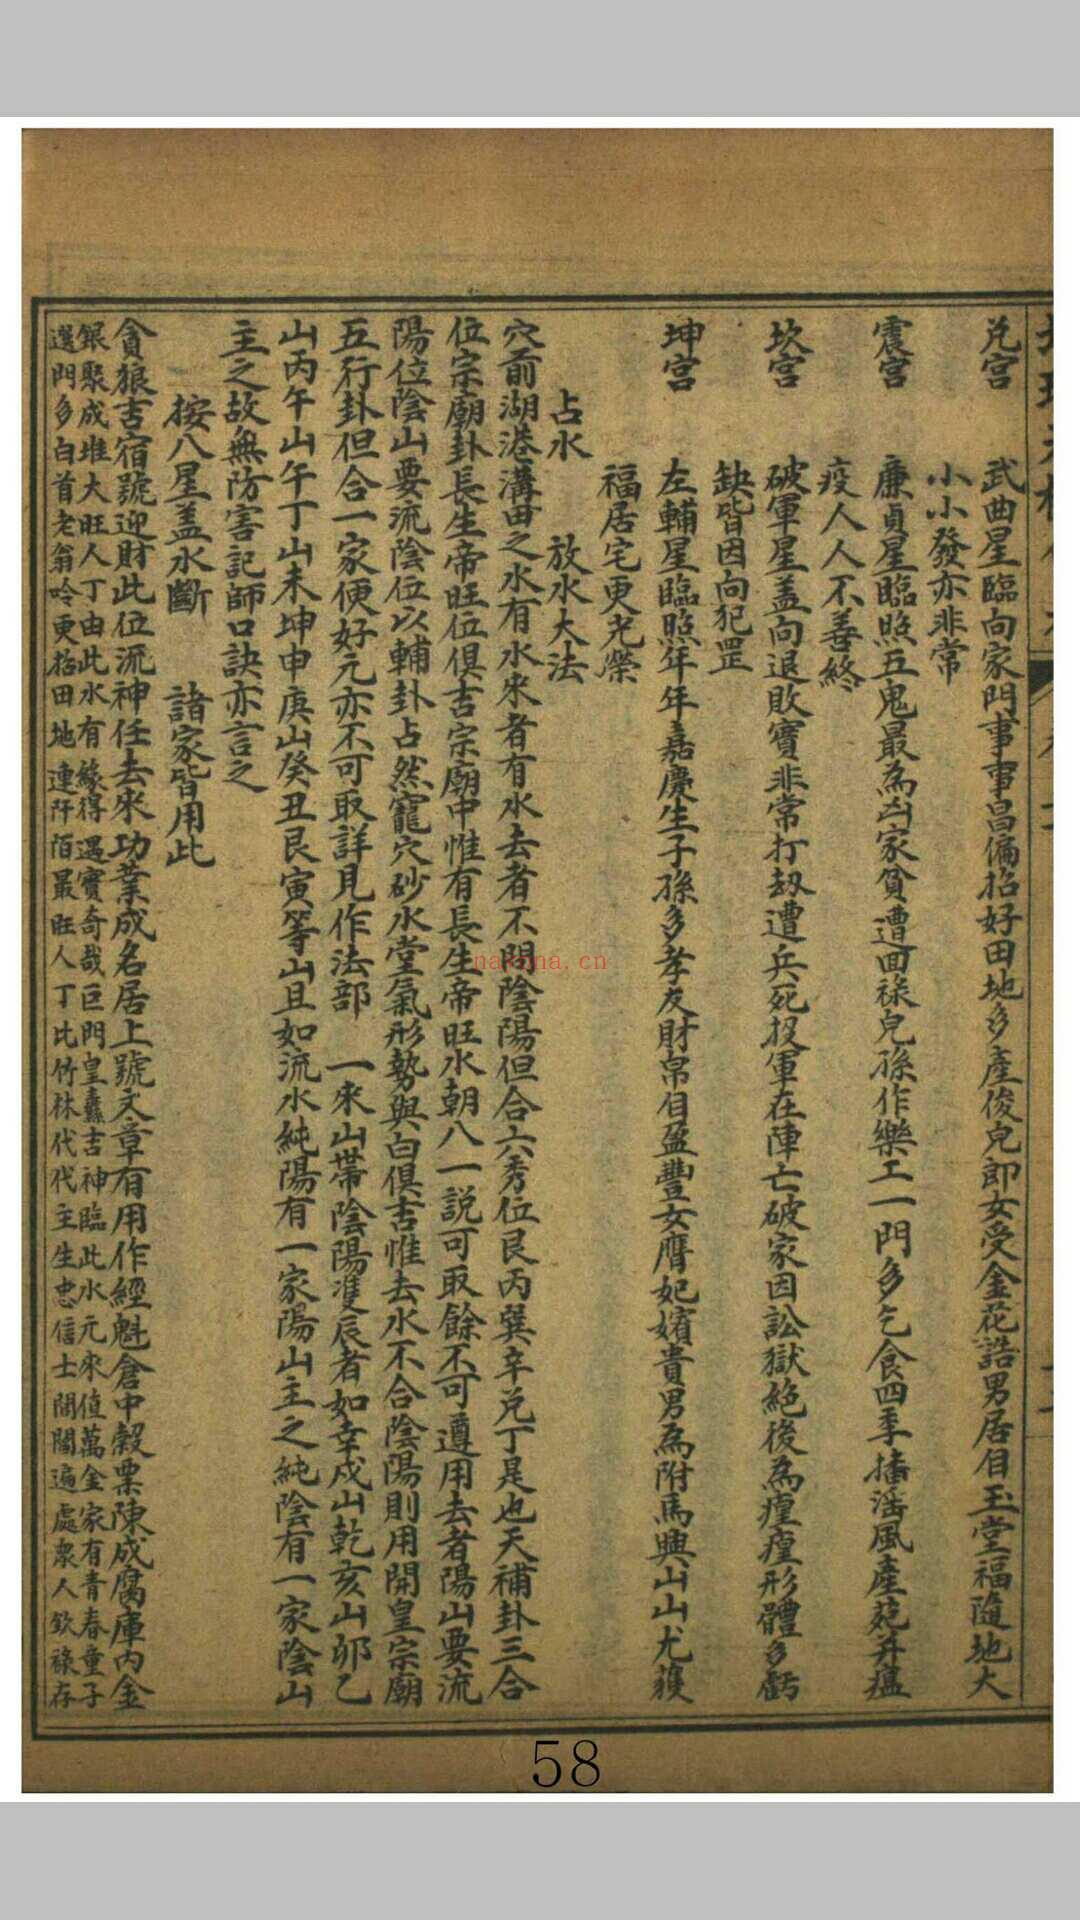 兌宮　武曲星臨向家門事事昌偏招好田地多產俊皃郎女受金花誥男居目玉堂福隨地大
小小發亦非常
震宮　廉貞星臨照五鬼最為凶家貧遭回祿皃孫作樂工一門多乞食四季播滛風產苑并瘟
疫人人不善終
坎宮　破軍星盖向退敗實非常打刼遭兵死投軍在陣亡破家因訟獄絕後為瘟瘟形體多虧
缺皆因向犯罡
坤宮　左輔星臨照年年嘉慶生子孫多孝友財帛目盈豐女膺妃嬪貴男為附馬興山山尤獲
福居宅更光榮
占水　放水大法
穴前湖港溝田之水有水來者有水去者不問陰陽但合六秀位艮丙巽辛兌丁是也天補卦三合
位宗廟卦長生帝旺位俱吉宗廟中惟有長生帝旺水朝八一説可取餘不可遵用去者陽山要流
陽位陰山要流陰位以輔卦占然竉穴砂水堂氣形勢與白俱吉惟去水不合陰陽則用開皇宗廟
五行卦但合一家便好元亦不可取詳見作法部　一來山帶陰陽雙辰者如幸戍山乾亥山夘乙
山丙午山午丁山未坤申庚山癸丑艮寅等山且如流水純陽有一家陽山主之純陰有一家陰山
主之故無防害記師口訣亦言之
按八星盖水斷　諸家皆用此
貪狼吉宿號迎財此位流神任去來功業成名居上號文章有用作經魁倉中穀粟陳成腐庫內金
銀聚成堆大旺人丁由此水有緣得遇實奇哉巨門皇蠡吉神臨此水元來值萬金家有青春童子
選門多白首老翁吟更招田地連阡陌最旺人丁比竹林代代主生忠信士閭閻遍處衆人欽祿存
58
naxona.cn